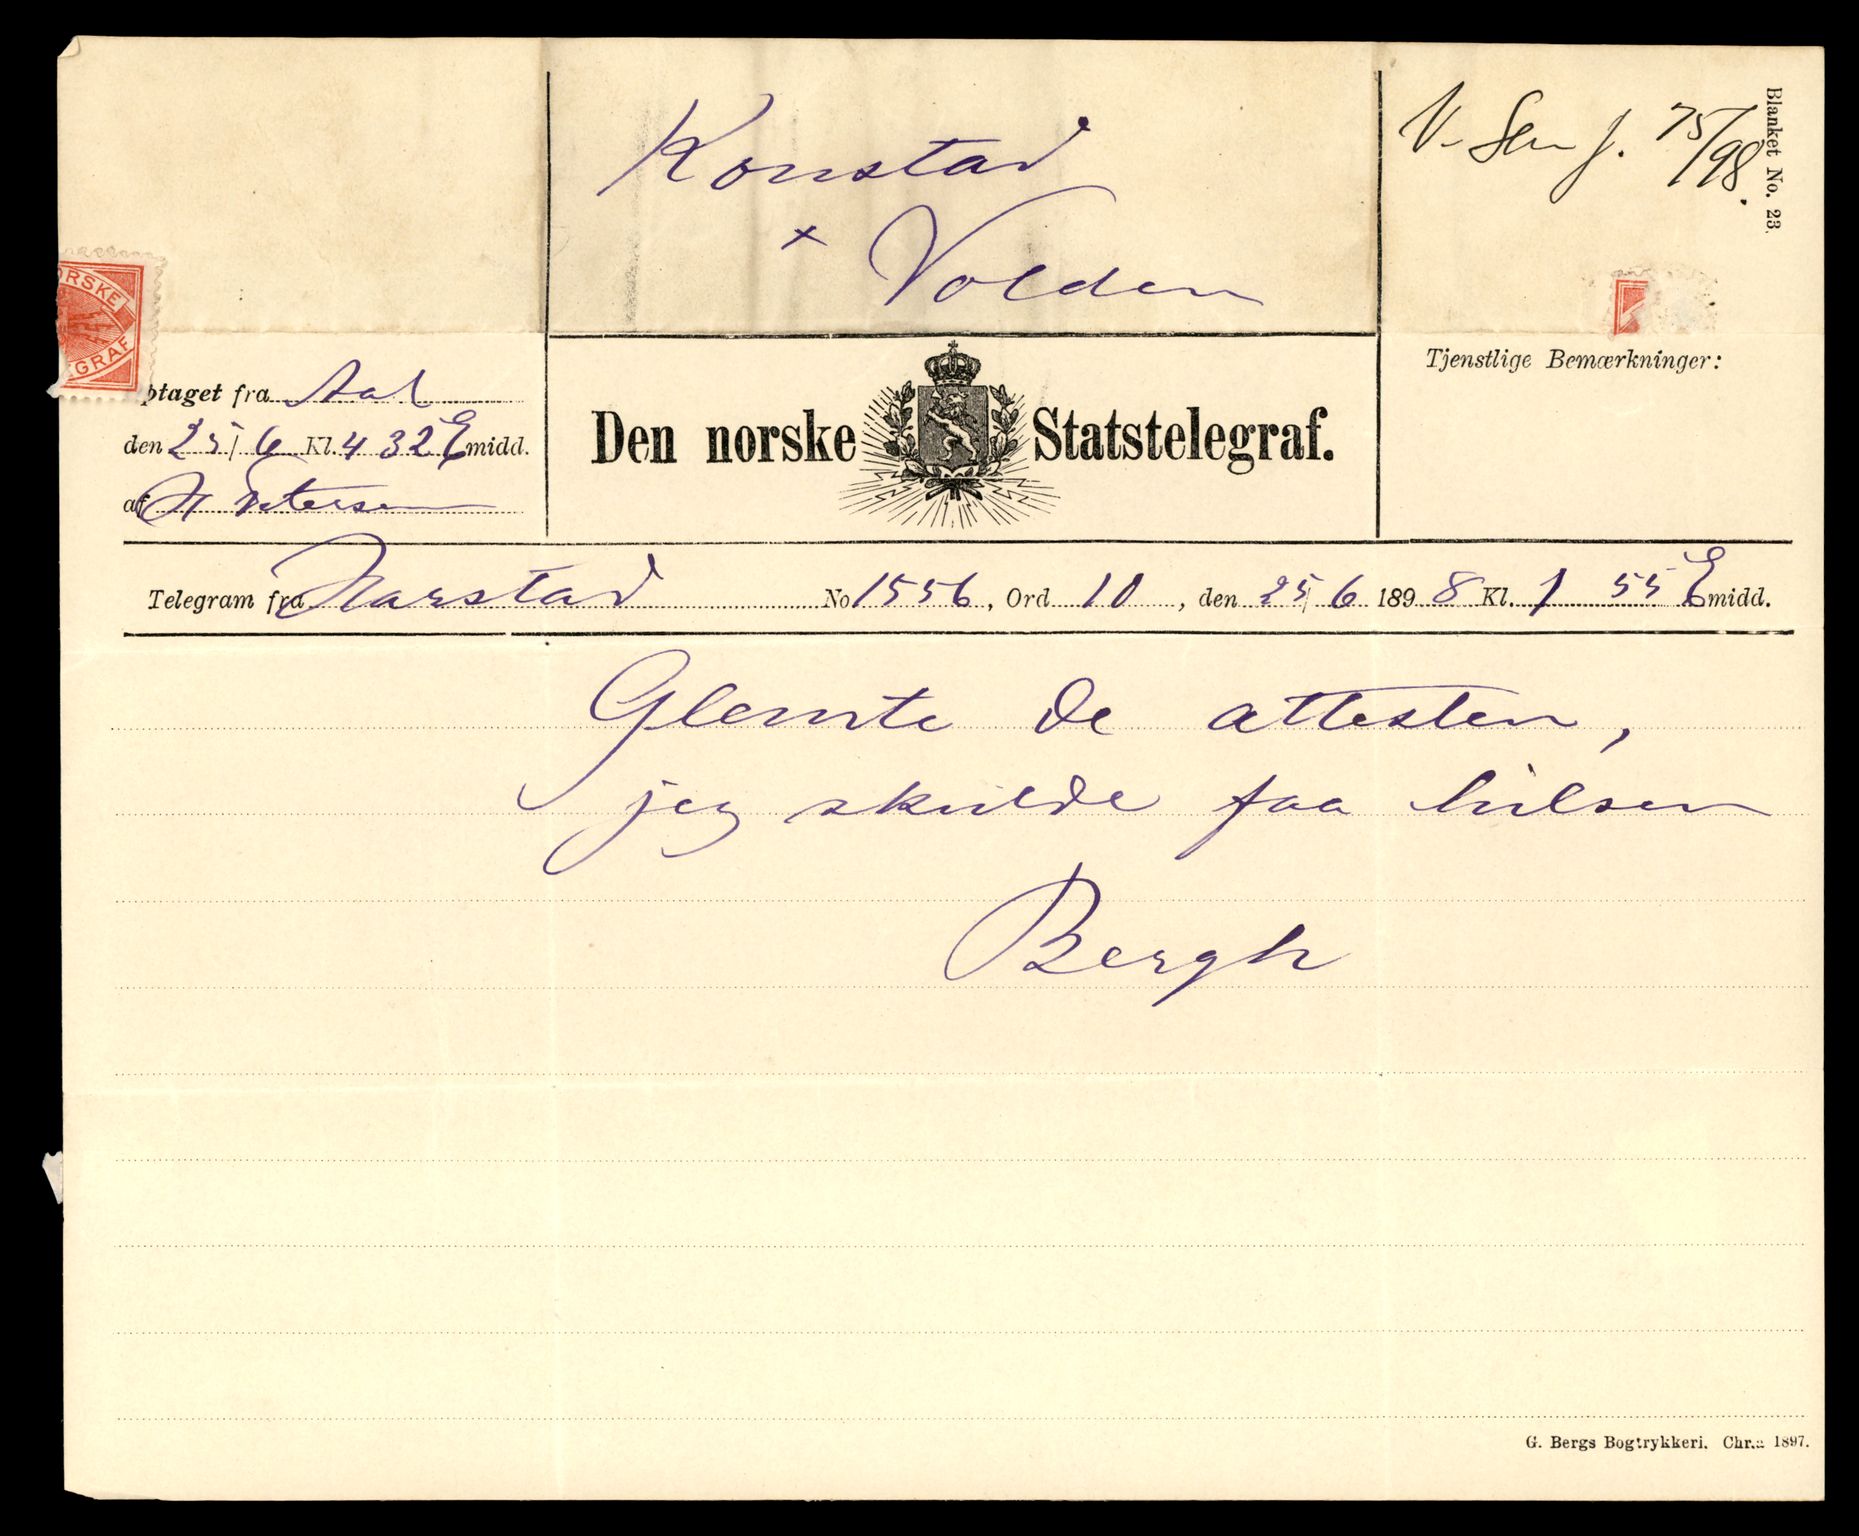 Konstad
+ Volden
V. J. 75/98.
Blanket No. 23.
ORSKE
EGRAF
ptaget fra Aal
den 25/6 Kl. 4 32 E midd.
af H Petersen
Den norske Statstelegraf.
Tjenstlige Bemærkninger:
Telegram fra Harstad No 1556, Ord 10, den 25/6 1898 Kl. 1 55 E midd.
Glemte De attesten,
jeg skulde faa hilsen
Bergh
G. Bergs Bogtrykkeri. Chr.a 1897.